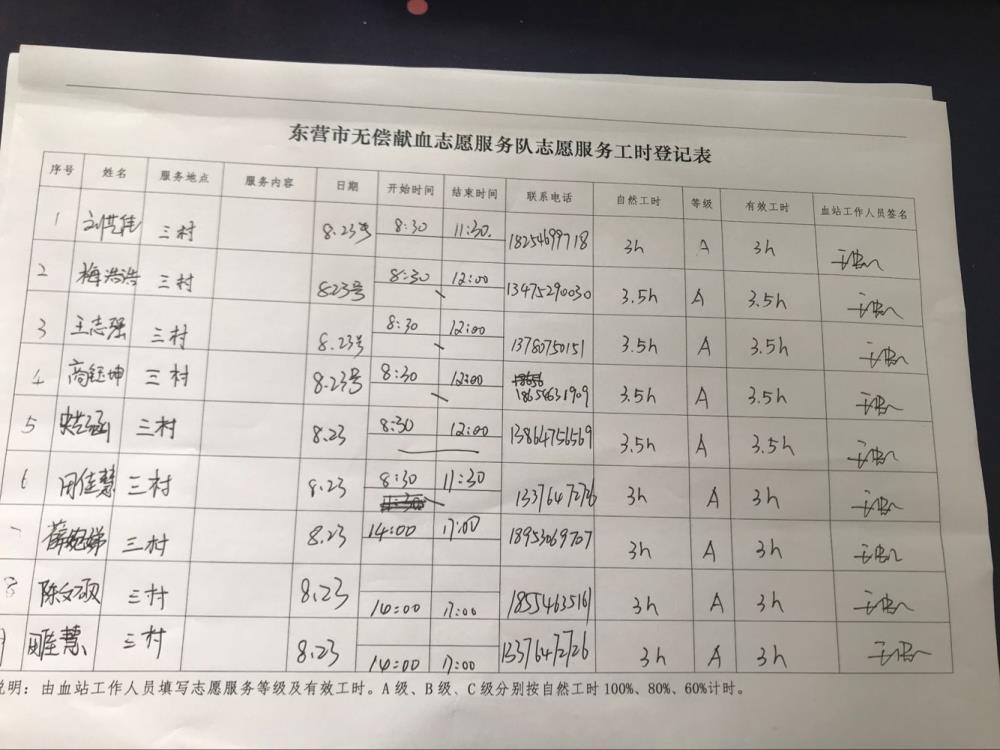 东营市无偿献血志愿服务队志愿服务工时登记表
序号 姓名 服务地点 服务内容 日期 开始时间 结束时间 联系电话 自然工时 等级 有效工时 血站工作人员签名
1 三村 8.23号 8:30 11:30. 18254699718 3h A 3h
2 梅浩浩 三村 8.23号 8:30 12:00 13475290030 3.5h A 3.5h
3 王志强 三村 8.23号 8:30 12:00 13780750151 3.5h A 3.5h
4 商钰坤 三村 8.23号 8:30 12:00 18654631909 3.5h A 3.5h
5 三村 8.23 8:30 12:00 13864756569 3.5h A 3.5h
6 周佳慧 三村 8.23 8:30 11:30 13376472726 3h A 3h
三村 8.23 14:00 17:00 18953069707 3h A 3h
8 三村 8.23 14:00 17:00 18554635161 3h A 3h
周佳慧 三村 8.23 14:00 17:00 13376472726 3h A 3h
说明：由血站工作人员填写志愿服务等级及有效工时。A级、B级、C级分别按自然工时100%、80%、60%计时。